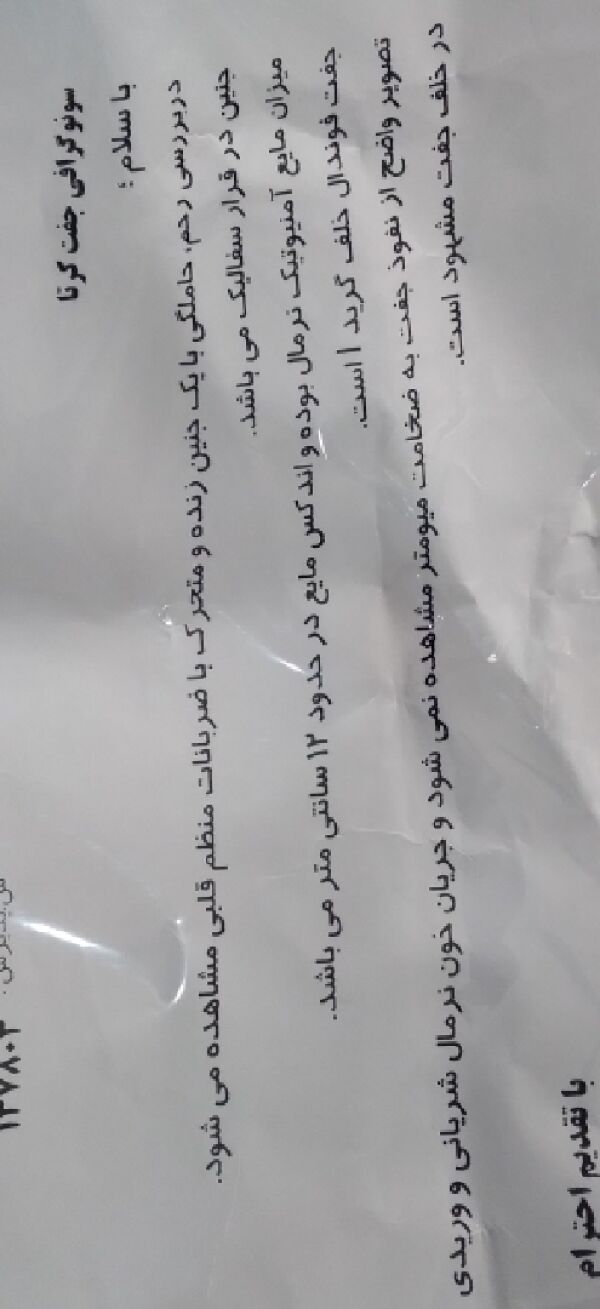 ۱۴۷۸۰۳
سونوگرافی جفت کرتا
با سلام ؛
دربررسی رحم، حاملگی با یک جنین زنده و متحرک با ضربانات منظم قلبی مشاهده می شود.
جنین در قرار سفالیک می باشد.
میزان مایع آمنیوتیک نرمال بوده و اندکس مایع در حدود ۱۲ سانتی متر می باشد.
جفت فوندال خلف گرید ا است.
تصویر واضح از نفوذ جفت به ضخامت میومتر مشاهده نمی شود و جریان خون نرمال شریانی و وریدی
در خلف جفت مشهود است.
با تقدیم احترام